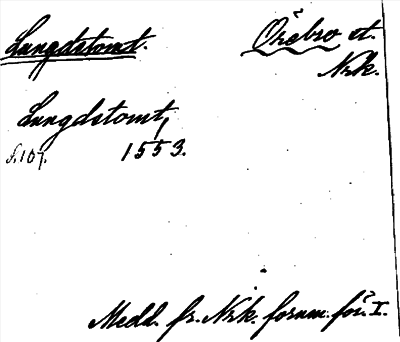 Lungdstomt. Örebro st.
Nrk.
Lungdstomt,
s. 107. 1553.
Medd. fr. Nrk. fornm. för. I.